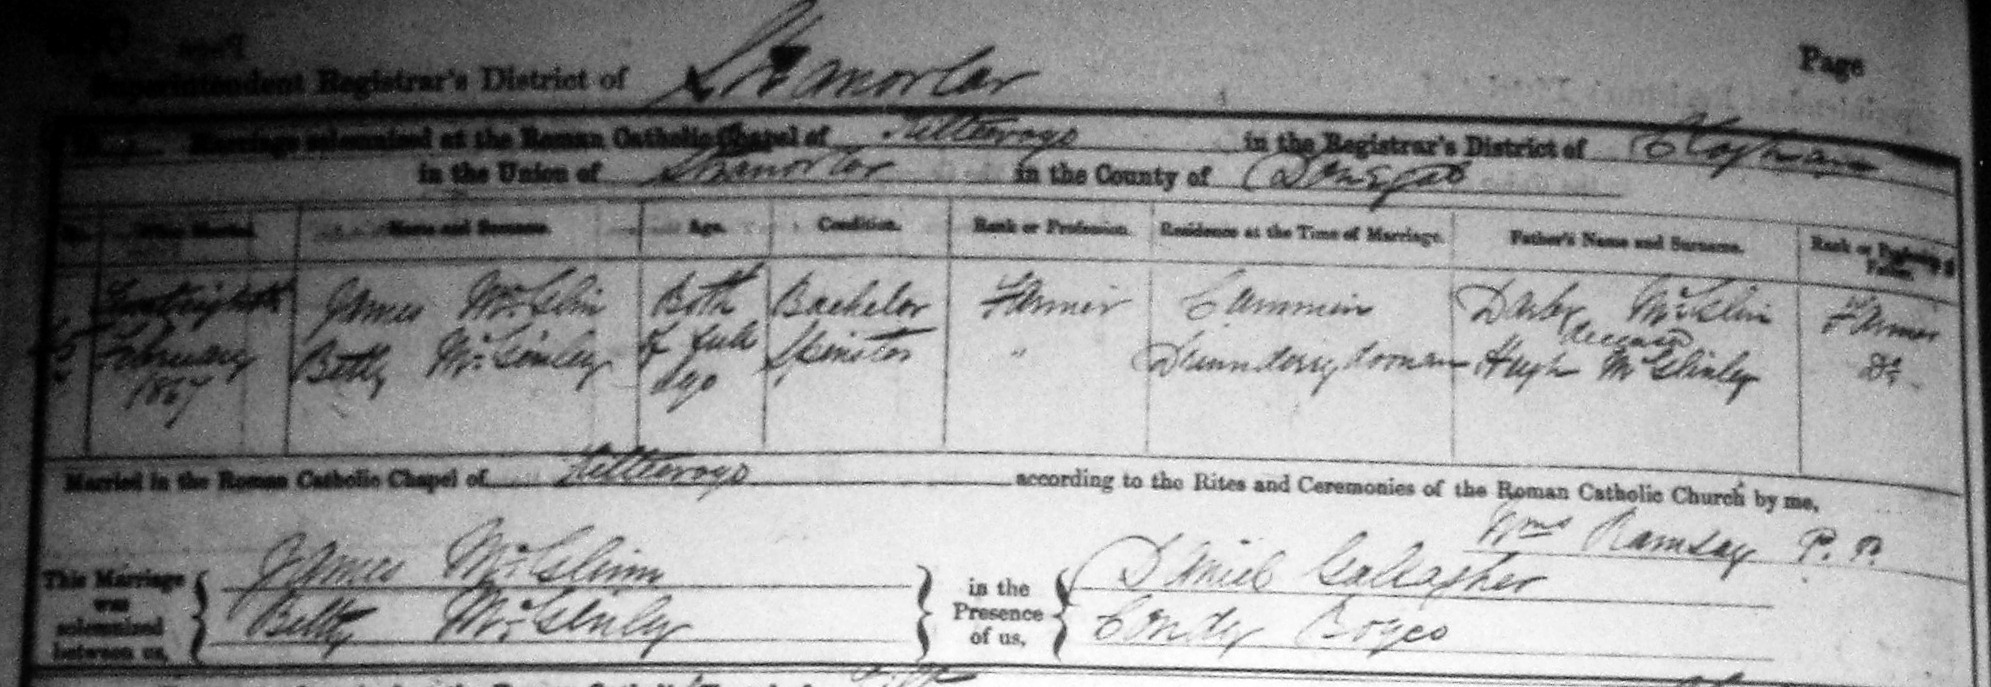 Page
Superintendent Registrar's District of Stranorlar
Marriage solemnized at the Roman Catholic Chapel of Kilteevoge in the Registrar's District of Cloghan
in the Union of Stranorlar in the County of Donegal
When Married. Name and Surname. Age. Condition. Rank or Profession. Residence at the Time of Marriage. Father's Name and Surname. Rank or Profession of Father.
James McGlin Both Bachelor Farmer Cummin Darby McGlin Farmer
deceased
February Betty McGinley of full Spinster " Hugh McGinley Do
1867 age
Married in the Roman Catholic Chapel of Kilteevoge according to the Rites and Ceremonies of the Roman Catholic Church by me,
Wm Ramsay P.P.
This Marriage was solemnized between us,
James McGlinn
Betty McGinley
in the Presence of us,
Daniel Gallagher
Condy Boyce